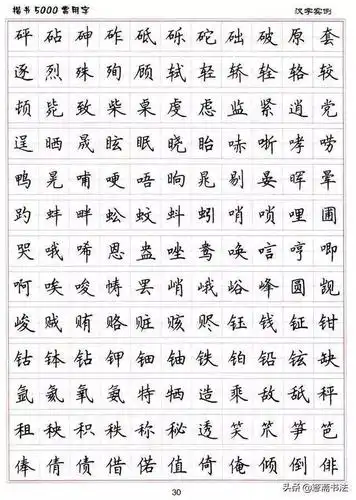 楷书5000常用字 汉字实例
砰 砧 砷 砟 砥 砾 砣 础 破 原 套
逐 烈 殊 殉 顾 轼 轻 轿 轾 辂 较
顿 毙 致 柴 桌 虔 虑 监 紧 逍 党
逞 晒 晟 眩 眠 晓 眙 哧 哳 哮 唠
鸭 晃 哺 哽 唔 晌 晁 剔 晏 晖 晕
趵 蚌 畔 蚣 蚊 蚪 蚓 哨 唢 哩 圃
哭 哦 唏 恩 盎 唑 鸯 唤 唁 哼 唧
啊 唉 唆 帱 罢 峭 峨 峪 峰 圆 觊
峻 贼 贿 赂 赃 赅 赆 钰 钱 钲 钳
钴 钵 钻 钾 钿 铀 铁 铂 铅 铉 缺
氩 氤 氧 氨 特 牺 造 乘 敌 舐 秤
租 秧 积 秩 称 秘 透 笑 笊 笋 笆
俸 倩 债 借 偌 值 倚 俺 倾 倒 俳
30
头条